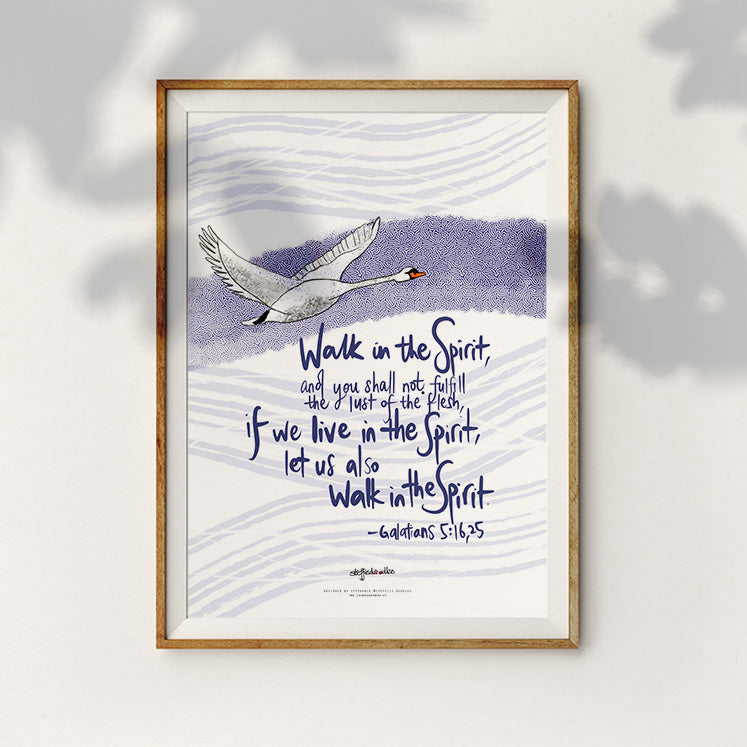 Walk in the Spirit,
and you shall not fulfill
the lust of the flesh,
if we live in the Spirit,
let us also
Walk in the Spirit.
-Galatians 5:16,25
steffiedoodles
DESIGNED BY STEPHANIE @STEFFIE_DOODLES